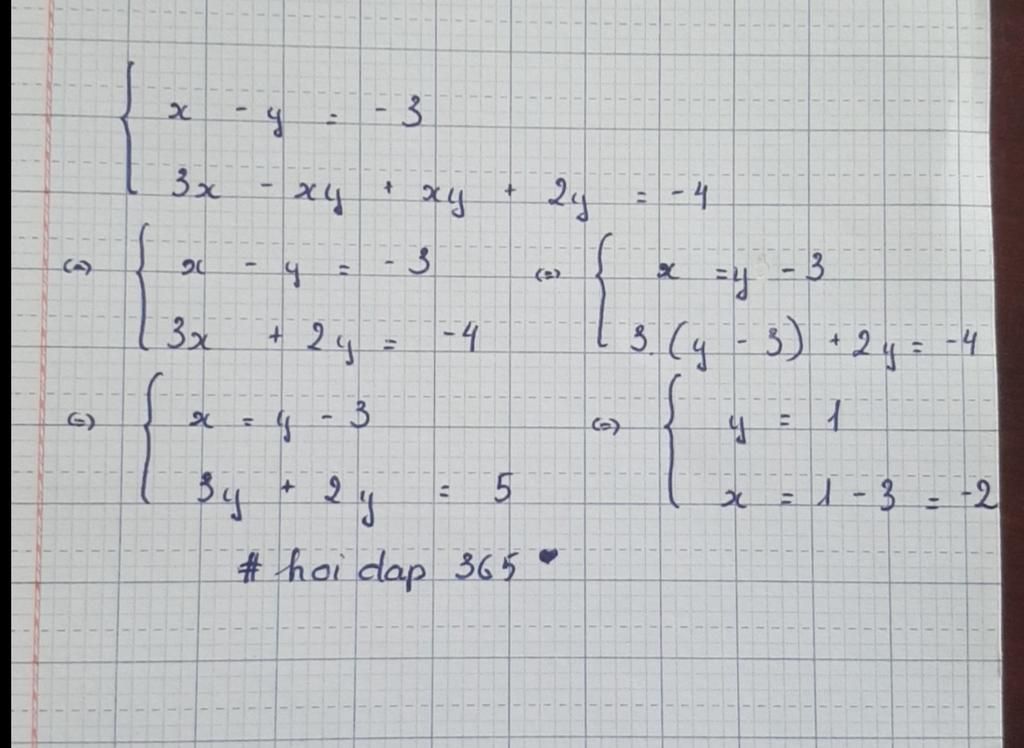 { x - y = -3
3x - xy + xy + 2y = -4
(=) { x - y = -3 (=) { x = y - 3
3x + 2y = -4 3.(y - 3) + 2y = -4
(=) { x = y - 3 (=) { y = 1
3y + 2y = 5 x = 1 - 3 = -2
# hoi dap 365 ♥